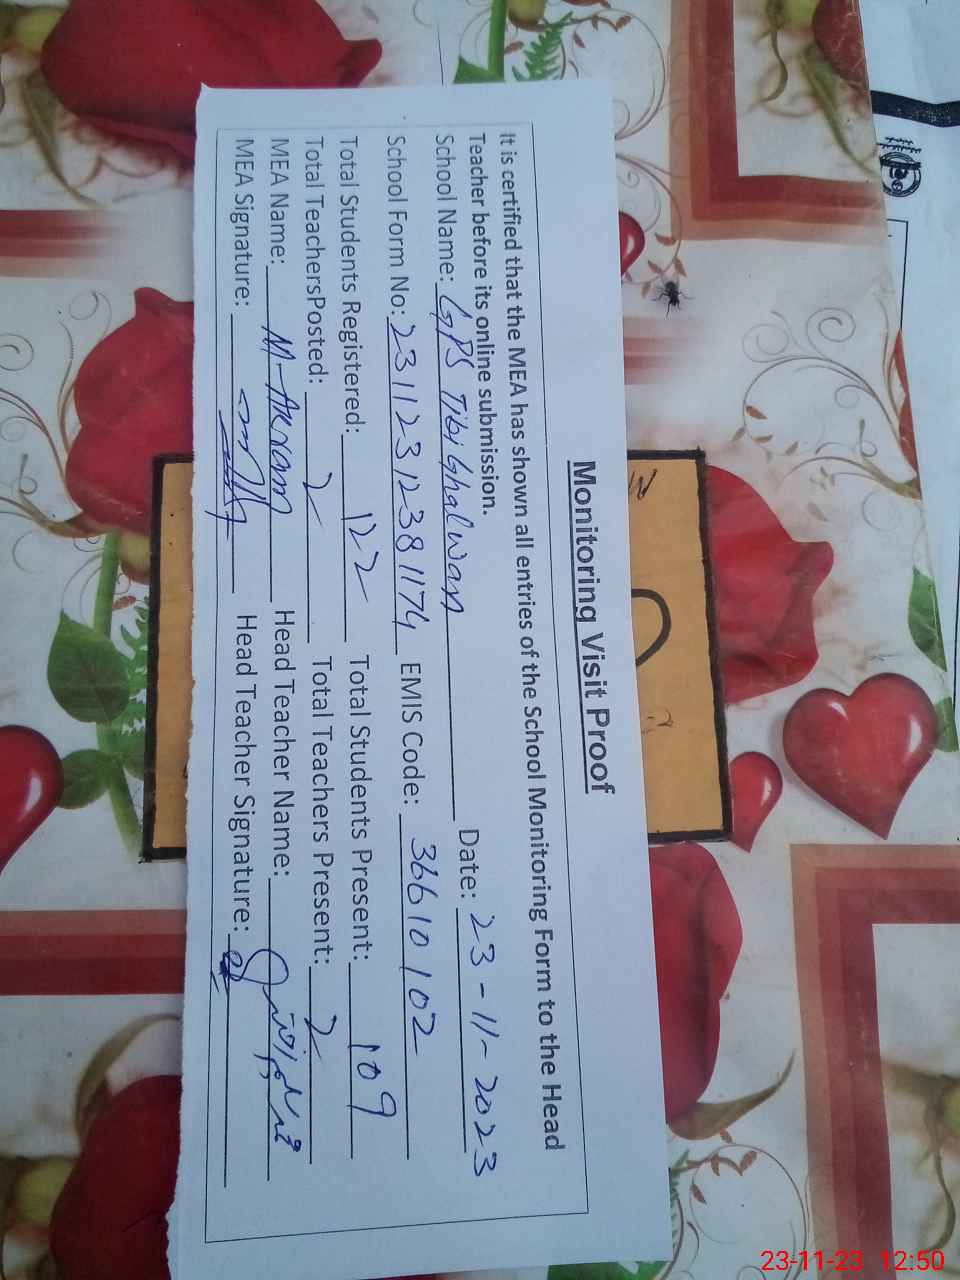 Monitoring Visit Proof
It is certified that the MEA has shown all entries of the School Monitoring Form to the Head
Teacher before its online submission.
School Name: GPS Tibi Ghalwan Date: 23-11-2023
School Form No: 231123123811174 EMIS Code: 36610102
Total Students Registered: 122 Total Students Present: 109
Total TeachersPosted: 2 Total Teachers Present: 2
MEA Name: M-Akram Head Teacher Name:
MEA Signature: Head Teacher Signature:
23-11-23 12:50